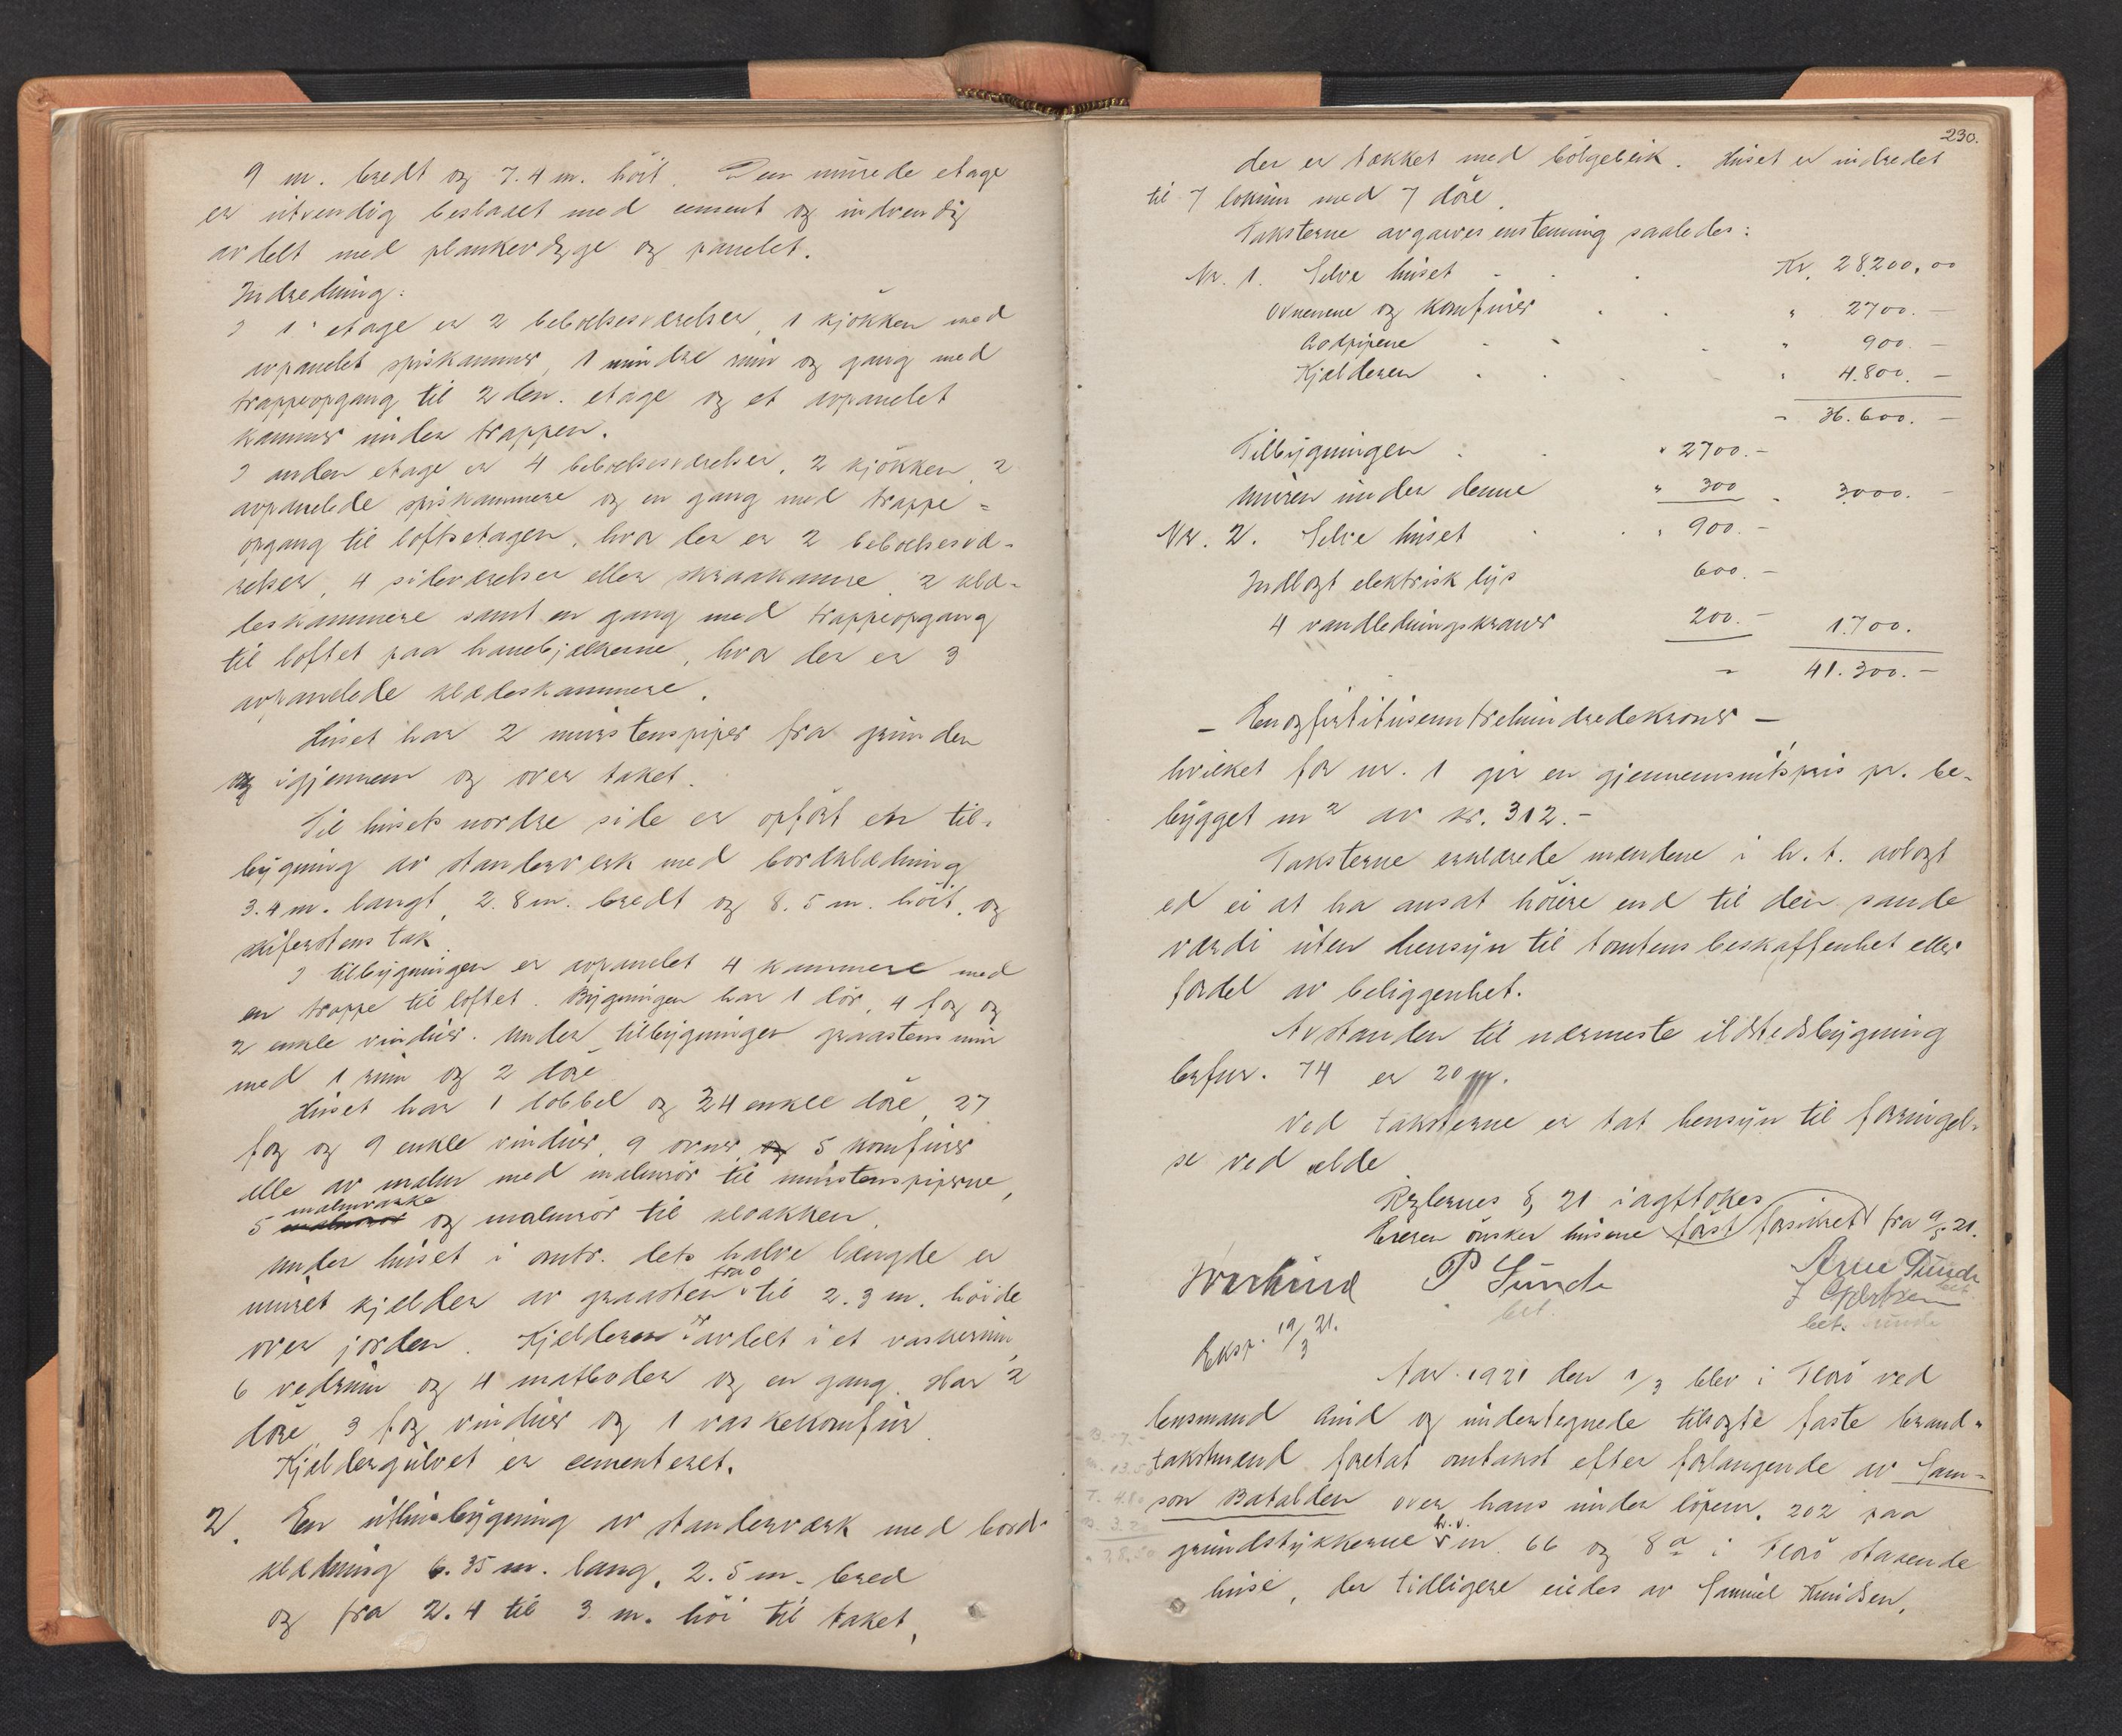 9 m. bredt og 7.4 m. höit. Den murede etage
er utvendig beslaaet med cement og indvendig
avdelt med plankevægge og panelet.
Indredning:
I 1. etage er 2 beboelsesværelser, 1 kjökken med
avpanelet spiskammer, 1 mindre rum og gang med
trappeopgang til 2 den. etage og et avpanelet
kammer under trappen.
I anden etage er 4 beboelsesværelser, 2 kjökken, 2
avpanelede spiskammere og en gang med trappe=
opgang til loftsetagen, hvor der er 2 beboelsesvæ-
relser, 4 sideværelser eller skraakamre, 2 klæ-
deskammere samt en gang med trappeopgang
til loftet paa hanebjælkerne, hvor der er 3
avpanelede klædeskammere.
Huset har 2 murstenspiper fra grunden
og igjennem og over taket.
Til husets nordre side er opfört en til-
bygning av stenderverk med bordklædning
3.4 m. langt, 2.8 m. bredt og 8.5 m. höit, og
skiferstens tak.
I tilbygningen er avpanelet 4 kammere med
en trappe til loftet. Bygningen har 1 dör, 4 fag og
2 enkle vinduer. Under tilbygningen graastens mur
med 1 rum og 2 döre
Huset har 1 dobbel og 24 enkle döre, 27
fag og 9 enkle vinduer, 9 ovner og 5 komfurer
alle av malm med malmrör til murstenspiperne,
malmvaske
5 malmrör og malmrör til kloakken.
Under huset i omtr. dets halve længde er
muret kjelder av graasten fra 0 til 2.3 m. höide
over jorden. Kjelderen er avdelt i et vaskerum,
6 vedrum og 4 matboder og en gang. Har 2
döre, 3 fag vinduer og 1 vaskekomfur.
Kjeldergulvet er cementeret.
2. En uthusbygning av stenderværk med bord-
klædning 6.35 m. lang, 2.5 m. bred
og fra 2.4 til 3 m. höi til taket,
230.
der er tækket med bölgeblik. Huset er indredet
til 7 lokum med 7 döre.
Taksterne avgaves enstemmig saaledes:
Nr. 1. Selve huset Kr. 28.200,00
Ovnene og komfurer " 2700.-
Rodpipene " 900.-
Kjælderen " 4.800.-
- 36.600.-
Tilbygningen " 2700.-
Muren under denne " 300 " 3000.-
Nr. 2. Selve huset " 900.-
Indlagt elektrisk lys 600.-
4 vandledningskraner 200.- 1.700.
- 41.300.-
- Enogfirtitusenntrehundredekroner -
hvilket for nr. 1 gir en gjennemsnitspris pr. be-
bygget m2 av kr. 312.-
Taksterne erklærede mændene i h. t. avlagt
ed ei at ha ansat höiere end til den sande
værdi uten hensyn til tomtens beskaffenhet eller
fordel av beliggenhet.
Avstanden til nærmeste ildstedsbygning
brfnr. 74 er 20 m.
Ved taksterne er tat hensyn til forringel-
se ved ælde
Reglernes § 21 iagttokes
Eieren önsker husene först forsikret fra 9/3 21.
P Sunde
Arne Sunde
bet.
Eksp. 19/3 21.
Aar 1921 den 1/3 blev i Florö ved
lensmand Quid og undertegnede tilsagte faste brand-
takstmænd foretat omtakst efter forlangende av Sam-
son Batalden over hans under löpenr. 202 paa
br. v.
grundstykkerne nr. 66 og 8a i Florö staaende
huse, der tidligere eiedes av Samuel Knudsen,